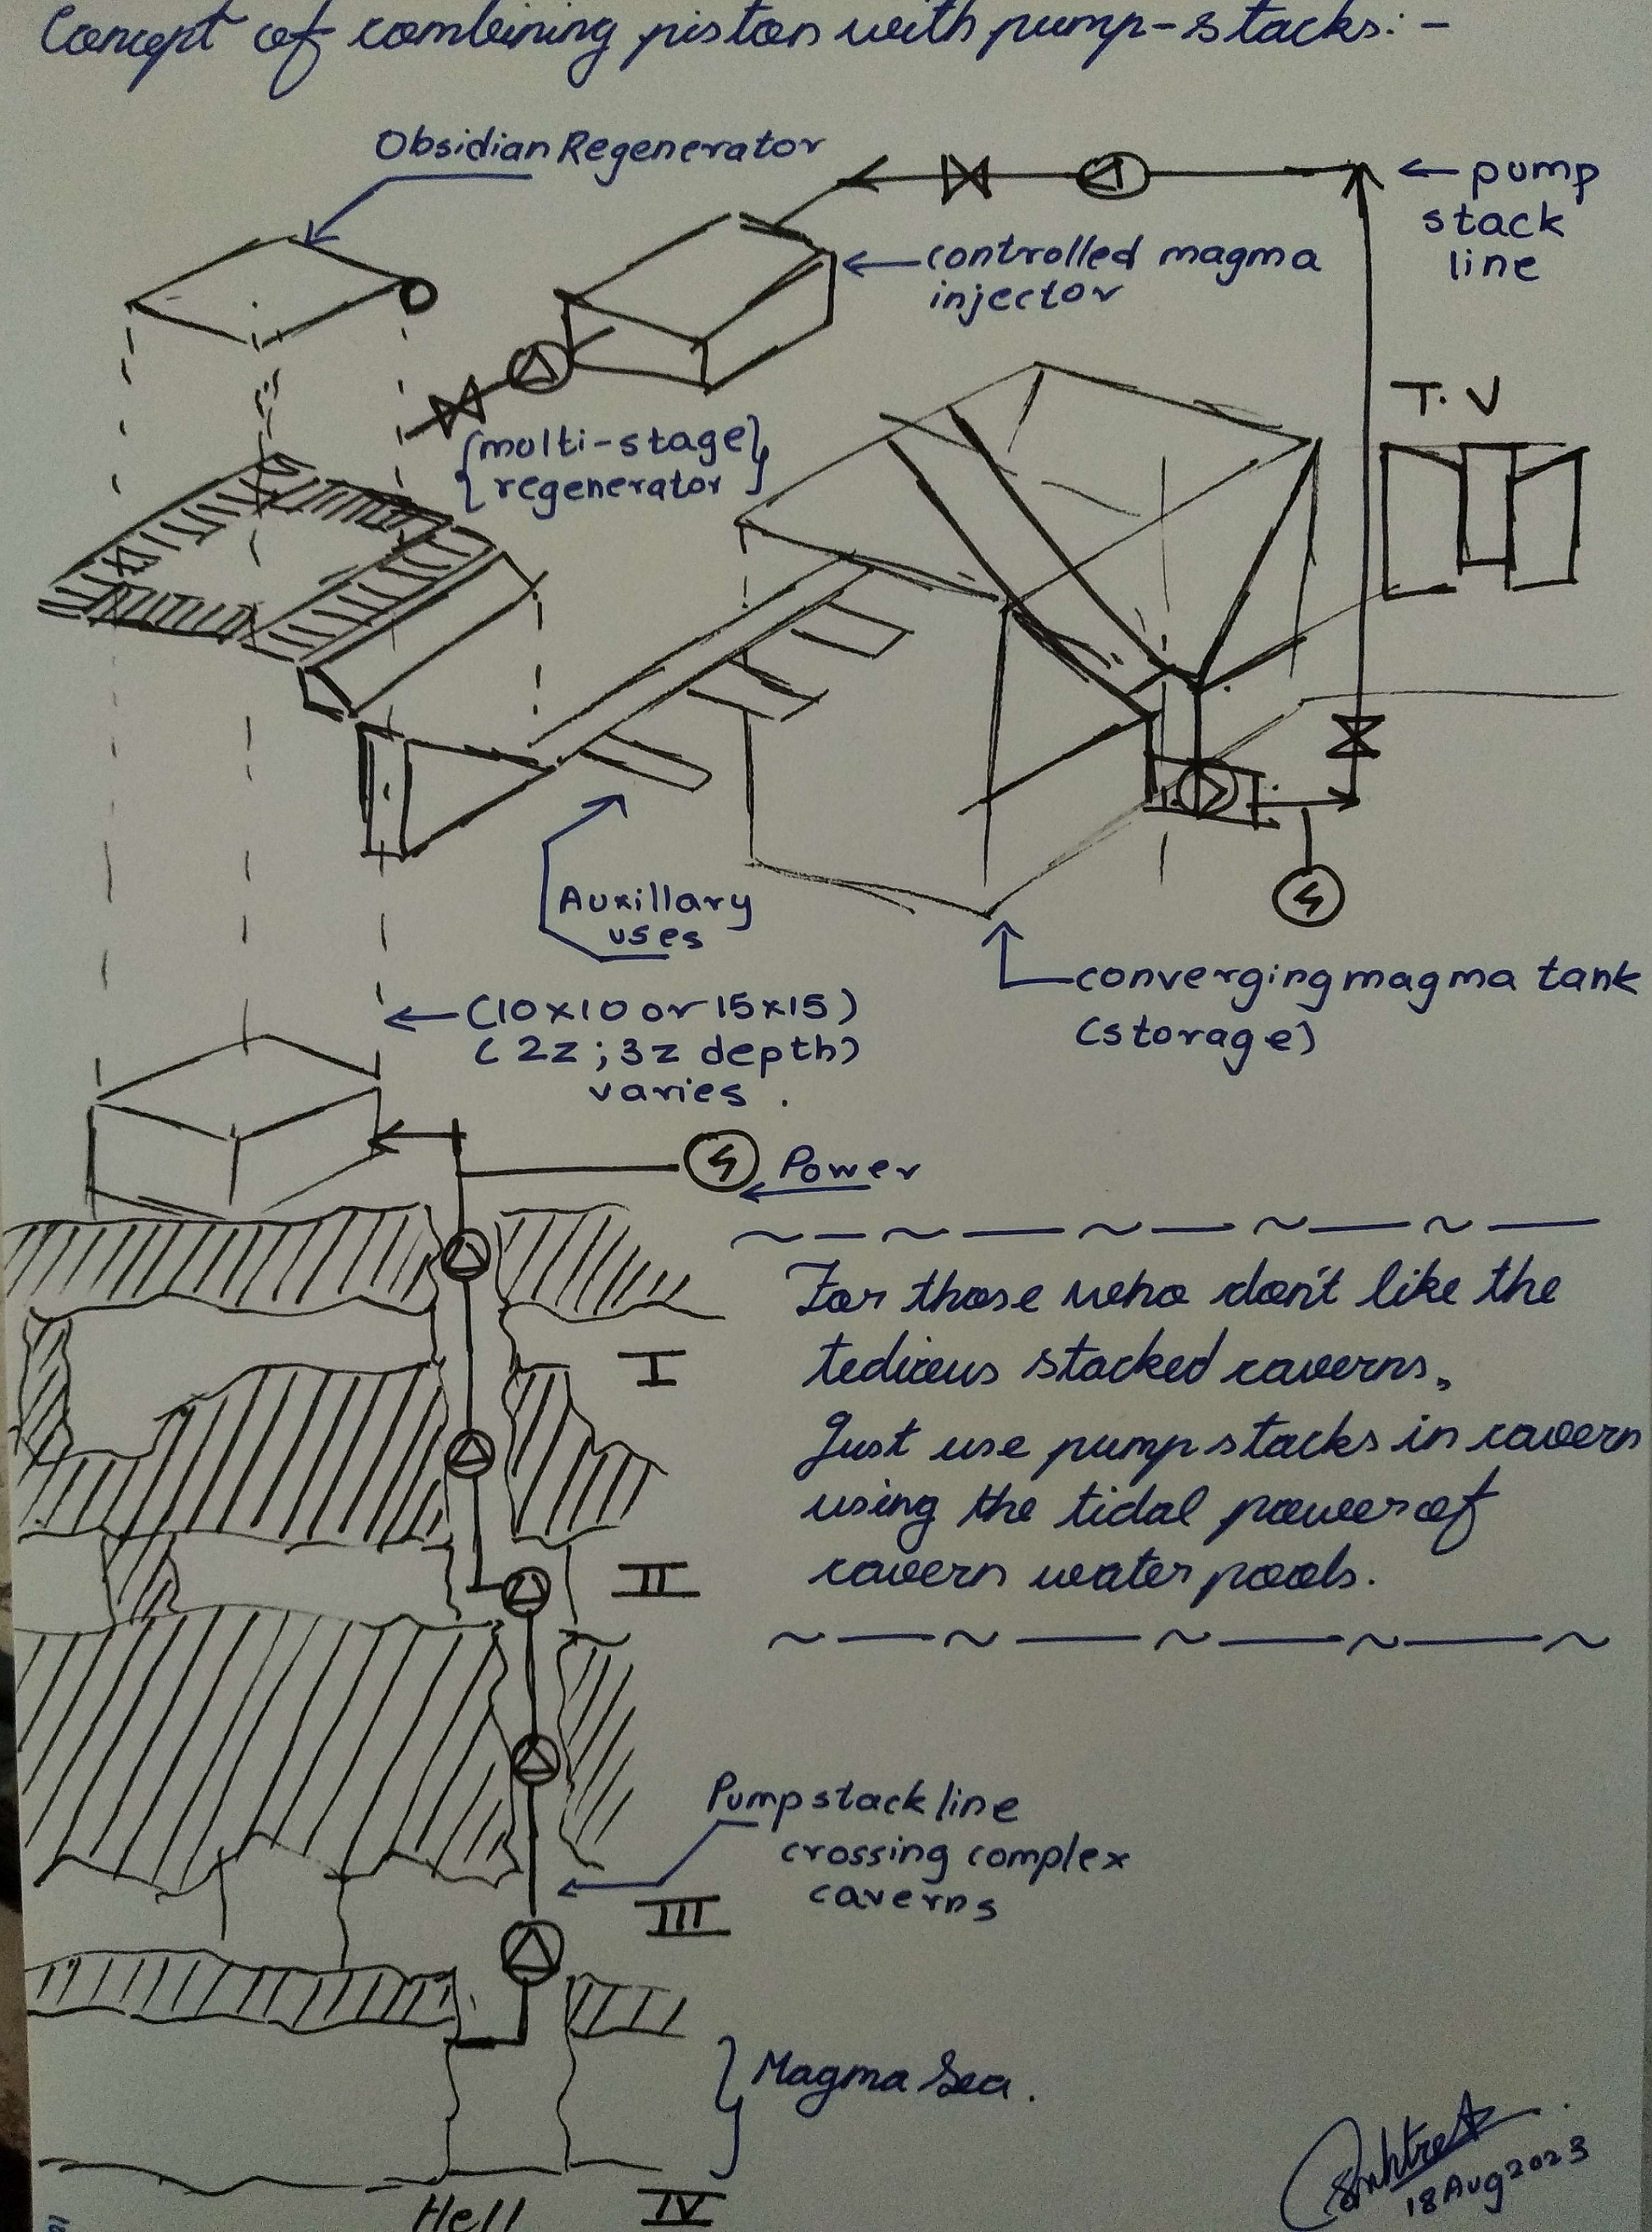 Concept of combining piston with pump-stacks:-
Obsidian Regenerator
← pump
stack
line
controlled magma
injector
T.V
{multi-stage}
{regenerator}
Auxillary
uses
converging magma tank
(storage)
(10x10 or 15x15)
(2z ; 3z depth)
varies.
Power
For those who don't like the
tedious stacked caverns,
Just use pump stacks in cavern
using the tidal power of
cavern water pools.
I
II
Pump stack line
crossing complex
caverns
III
Magma Sea.
18 Aug 2023
Hell
IV